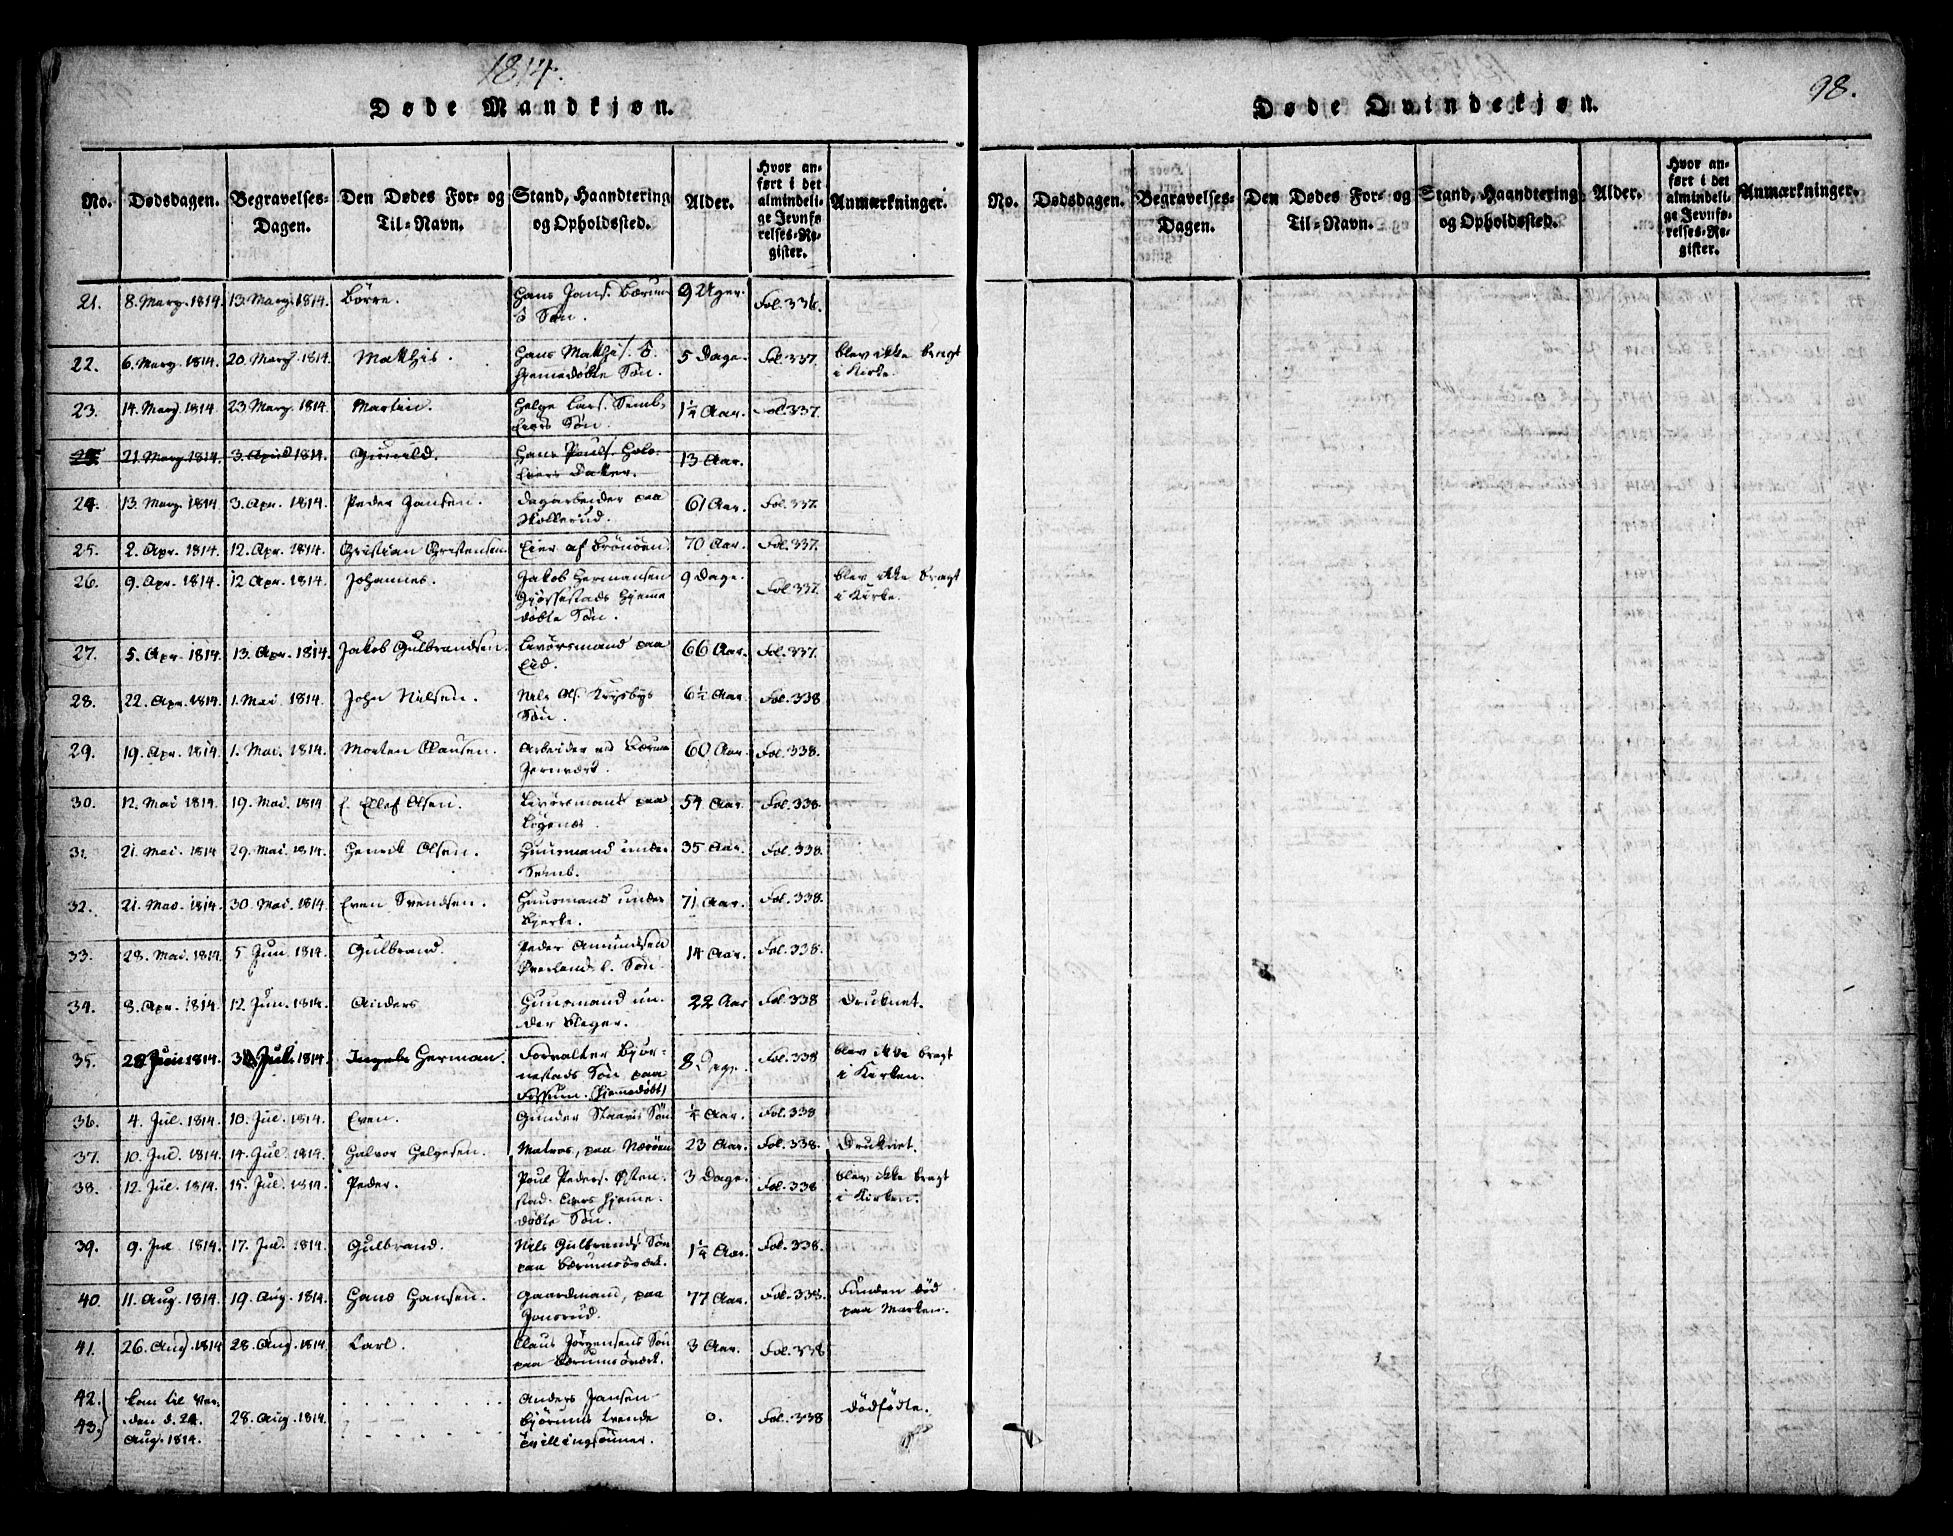 1814.
Døde Mandkjøn.
No. Dødsdagen. Begravelses-Dagen. Den Dødes For- og Til-Navn. Stand, Haandtering og Opholdssted. Alder. Hvor anført i det almindelige Jevnførelses-Register. Anmærkninger.
21. 8. Marz. 1814. 13. Marz. 1814. Börre. Hans Jans. Bærums Søn. 9 Uger. Fol. 336.
22. 6. Marz. 1814. 20. Marz. 1814. Mathis. Hans Mathis. hjemedöbte Søn. 5 Dage. Fol. 337. blev ikke bragt i Kirke.
23. 14. Marz. 1814 23 Marz. 1814. Martin. Helge Lars. Sembs Eiers Søn. 1¼ Aar. Fol. 337.
21. Marz. 1814. 3. April 1814. Gunild. Hans Pouls. Eiers Datter. 13 Aar.
24. 13. Marz. 1814 3. Apr. 1814. Peder Jansen. Dagarbeider paa Skollerud. 61 Aar. Fol. 337.
25. 2. Apr. 1814. 12. Apr. 1814. Christian Christensen. Eier af Brönöen. 70 Aar. Fol. 337.
26. 9. Apr. 1814. 12 Apr. 1814. Johannes. Jakob Hermansen hjemedöbte Søn. 9 Dage. Fol 337. blev ikke bragt i Kirke.
27. 5. Apr. 1814. 13. Apr. 1814. Jakob Gulbrandsen. paa Eid. 66 Aar. Fol. 337.
28. 22. Apr. 1814. 1. Mai. 1814. John Nilsen. Nils Ols. Søn. 6½ Aar. Fol. 338
29. 19. Apr. 1814. 1. Mai. 1814. Morten Clausen. Arbeider ved Bærums Jernværk. 60 Aar. Fol. 338.
30. 12. Mai 1814. 19. Mai. 1814 Ellef Olsen. paa 54 Aar. Fol. 338.
31. 21. Mai. 1814 29. Mai. 1814. Henrik Olsen. Huusmand under Semb. 35 Aar. Fol. 338.
32. 21. Mai. 1814. 30. Mai. 1814. Even Svendsen. Huusmand under Bjerke. 71 Aar. Fol. 338.
33. 28. Mai. 1814. 5 Jun. 1814. Gulbrand. Peder Amundsen Øverland Søn. 14 Aar. Fol. 338.
34. 8. Apr. 1814. 12. Jun. 1814. Anders Huusmand under Sleger. 22 Aar Fol. 338 Druknet.
35. Juni 1814. Jul. 1814. Herman. Forvalter Björnestads Søn paa Fossum. (hjemedöbt) 8 Dage. Fol. 338 blev ikke bragt i Kirken.
36. 4. Jul. 1814. 10. Jul. 1814. Even. Gunder Søn ¼ Aar. Fol. 338
37. 10. Jul. 1814. 14. Jul. 1814. Halvor Helgesen. Matros, paa Næröen 23 Aar. Fol. 338. Druknet.
38. 12. Jul. 1814. 15. Jul. 1814. Peder. Poul Peders. Østenstad Eiers hjemedöbte Søn. 3 Dage. Fol. 338 blev ikke bragt i Kirken.
39. 9. Jul 1814. 17. Jul. 1814. Gulbrand. Nils Gulbrands Søn paa Bærumsværk. 1¼ Aar. Fol. 338.
40. 11. Aug. 1814. 19. Aug. 1814. Hans Hansen. Gaardmand, paa Jonsrud. 77 Aar. Fol. 338. Funden död paa Marken.
41. 26. Aug. 1814 28. Aug. 1814. Carl. Claus Jörgensens Søn paa Bærumsværk. 3 Aar. Fol. 338
42. 43. kom til Verden d. 24. Aug. 1814. 28. Aug. 1814. Anders Jansen Björums tvende tvillingsönner. 0. Fol. 338 dödfödte.
98.
Døde Qvindekjøn.
No. Dødsdagen. Begravelses-Dagen. Den Dødes For- og Til-Navn. Stand, Haandtering og Opholdssted. Alder. Hvor anført i det almindelige Jevnførelses-Register. Anmærkninger.